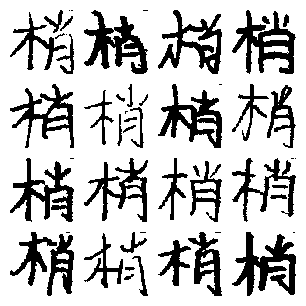 梢梢梢梢
梢梢梢梢
梢梢梢梢
梢梢梢梢